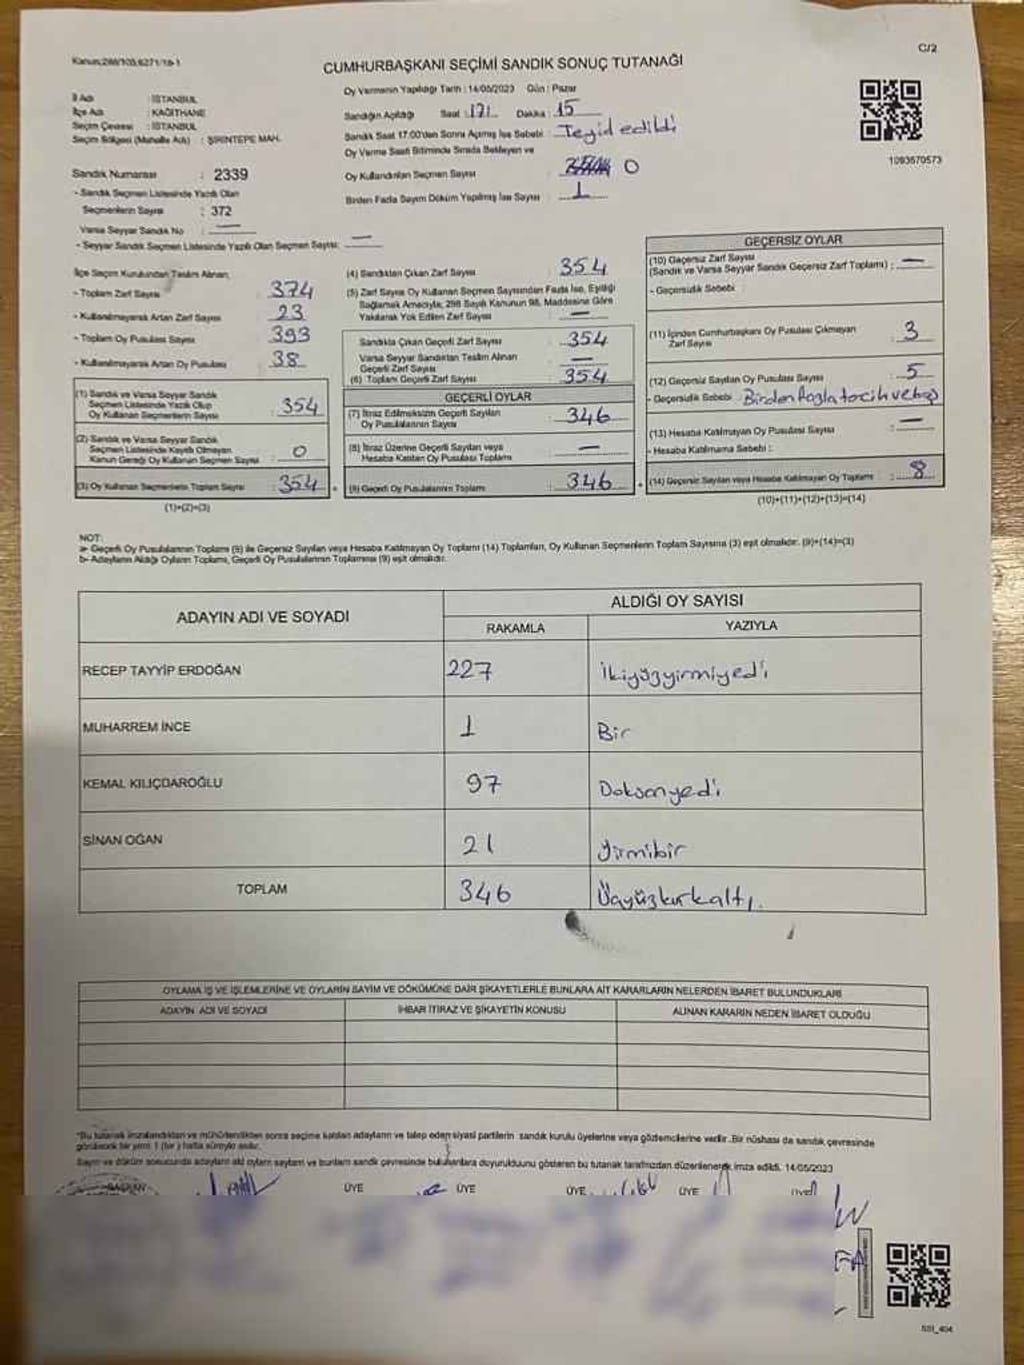 Kanun:298/103,6271/18-1
C/2
CUMHURBAŞKANI SEÇİMİ SANDIK SONUÇ TUTANAĞI
İl Adı : İSTANBUL
İlçe Adı : KAĞITHANE
Seçim Çevresi : İSTANBUL
Seçim Bölgesi (Mahalle Adı) : ŞİRİNTEPE MAH.
Sandık Numarası : 2339
- Sandık Seçmen Listesinde Yazılı Olan
Seçmenlerin Sayısı : 372
Varsa Seyyar Sandık No : —
- Seyyar Sandık Seçmen Listesinde Yazılı Olan Seçmen Sayısı: —
Oy Vermenin Yapıldığı Tarih : 14/05/2023 Gün : Pazar
Sandığın Açıldığı Saat : 17 Dakika : 15
Sandık Saat 17.00'den Sonra Açılmış İse Sebebi : Teyid edildi
Oy Verme Saati Bitiminde Sırada Bekleyen ve
Oy Kullandırılan Seçmen Sayısı : 0
Birden Fazla Sayım Döküm Yapılmış İse Sayısı : 1
1093670573
İlçe Seçim Kurulundan Teslim Alınan;
- Toplam Zarf Sayısı : 374
- Kullanılmayarak Artan Zarf Sayısı : 23
- Toplam Oy Pusulası Sayısı : 393
- Kullanılmayarak Artan Oy Pusulası : 38
(1) Sandık ve Varsa Seyyar Sandık
Seçmen Listesinde Yazılı Olup
Oy Kullanan Seçmenlerin Sayısı : 354
(2) Sandık ve Varsa Seyyar Sandık
Seçmen Listesinde Kayıtlı Olmayan
Kanun Gereği Oy Kullanan Seçmen Sayısı : 0
(3) Oy Kullanan Seçmenlerin Toplam Sayısı : 354
(1)+(2)=(3)
(4) Sandıktan Çıkan Zarf Sayısı : 354
(5) Zarf Sayısı Oy Kullanan Seçmen Sayısından Fazla İse, Eşitliği
Sağlamak Amacıyla, 298 Sayılı Kanunun 98. Maddesine Göre
Yakılarak Yok Edilen Zarf Sayısı : —
Sandıkta Çıkan Geçerli Zarf Sayısı : 354
Varsa Seyyar Sandıktan Teslim Alınan
Geçerli Zarf Sayısı : —
(6) Toplam Geçerli Zarf Sayısı : 354
GEÇERLİ OYLAR
(7) İtiraz Edilmeksizin Geçerli Sayılan
Oy Pusulalarının Sayısı : 346
(8) İtiraz Üzerine Geçerli Sayılan veya
Hesaba Katılan Oy Pusulası Toplamı : —
(9) Geçerli Oy Pusulalarının Toplamı : 346
GEÇERSİZ OYLAR
(10) Geçersiz Zarf Sayısı
(Sandık ve Varsa Seyyar Sandık Geçersiz Zarf Toplamı) : —
- Geçersizlik Sebebi :
(11) İçinden Cumhurbaşkanı Oy Pusulası Çıkmayan
Zarf Sayısı : 3
(12) Geçersiz Sayılan Oy Pusulası Sayısı : 5
- Geçersizlik Sebebi : Birden fazla tercih ve boş
(13) Hesaba Katılmayan Oy Pusulası Sayısı : —
- Hesaba Katılmama Sebebi :
(14) Geçersiz Sayılan veya Hesaba Katılmayan Oy Toplamı : 8
(10)+(11)+(12)+(13)=(14)
NOT:
a- Geçerli Oy Pusulalarının Toplamı (9) ile Geçersiz Sayılan veya Hesaba Katılmayan Oy Toplamı (14) Toplamları, Oy Kullanan Seçmenlerin Toplam Sayısına (3) eşit olmalıdır. (9)+(14)=(3)
b- Adayların Aldığı Oyların Toplamı, Geçerli Oy Pusulalarının Toplamına (9) eşit olmalıdır.
ADAYIN ADI VE SOYADI
ALDIĞI OY SAYISI
RAKAMLA YAZIYLA
RECEP TAYYİP ERDOĞAN 227 ikiyüzyirmiyedi
MUHARREM İNCE 1 Bir
KEMAL KILIÇDAROĞLU 97 Doksanyedi
SİNAN OĞAN 21 yirmibir
TOPLAM 346 Üçyüzkırkaltı
OYLAMA İŞ VE İŞLEMLERİNE VE OYLARIN SAYIM VE DÖKÜMÜNE DAİR ŞİKAYETLERLE BUNLARA AİT KARARLARIN NELERDEN İBARET BULUNDUKLARI
ADAYIN ADI VE SOYADI İHBAR İTİRAZ VE ŞİKAYETİN KONUSU ALINAN KARARIN NEDEN İBARET OLDUĞU
*Bu tutanak imzalandıktan ve mühürlendikten sonra seçime katılan adayların ve talep eden siyasi partilerin sandık kurulu üyelerine veya gözlemcilerine verilir. Bir nüshası da sandık çevresinde
görülecek bir yere 1 (bir) hafta süreyle asılır.
Sayım ve döküm sonucunda adayların aldığı oyların sayıları ve bunların sandık çevresinde bulunanlara duyurulduğunu gösteren bu tutanak tarafımızdan düzenlenerek imza edildi. 14/05/2023
BAŞKAN ÜYE ÜYE ÜYE ÜYE ÜYE